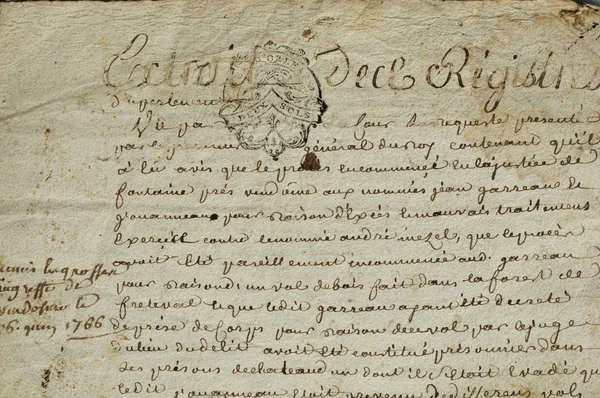 Extrait des Registres
du parlement
Vu pa la Cour la requeste presenté
par le general du roy contenant quil
a eu avis que le procès encommencé en la justice de
fontaine près vendome aux nommés jean garreau et
jouanneau pour raison d'Excés et mauvais traitemens
Exercés contre le nommé andré mezel, que le procès
avoit Eté pareillement encommencé aud. garreau
pour raison d'un vol de bois fait dans la forest de
freteval et que ledit garreau ayant été decreté
de prise de Corps pour raison de ce vol par le juge
du lieu du delit avoit été constitué prisonnier dans
les prisons de chateaudun dont il s'Etait Evadé q
ledit jouanneau Etait prevenu de differens vols
la grosse
greffe de
vendosme le
6. juin 1766
DEUX SOLS